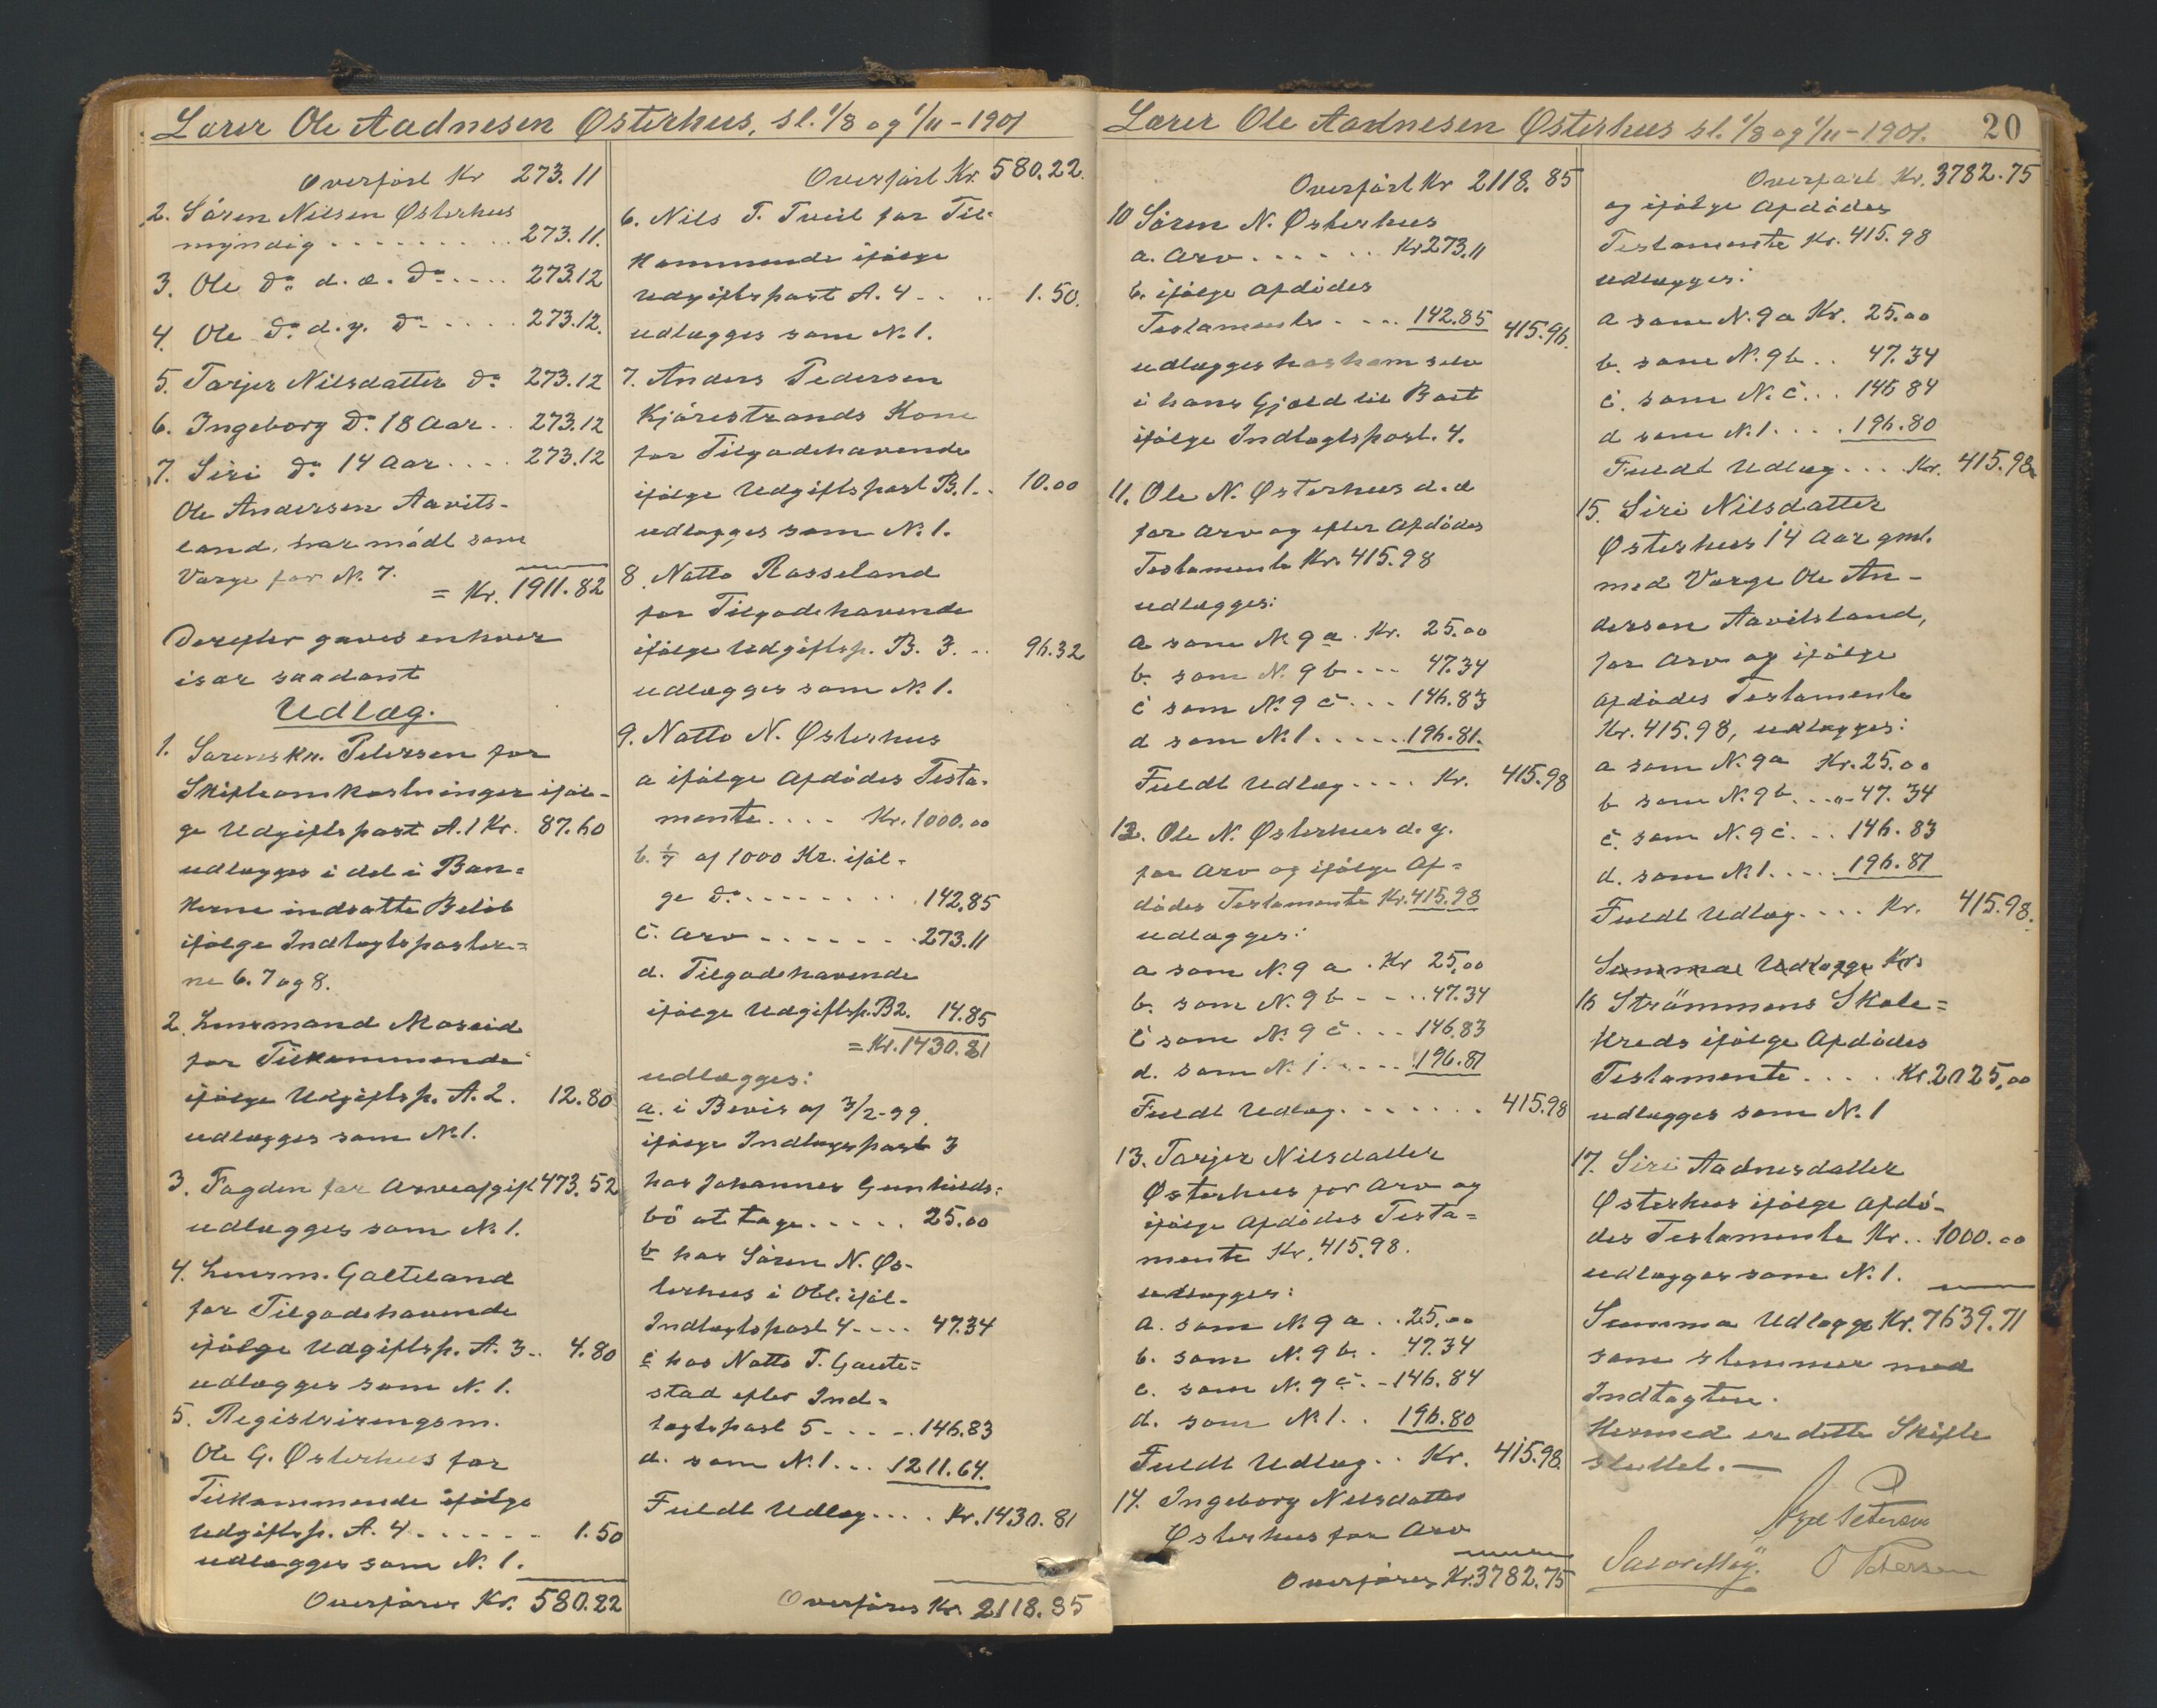 Lærer Ole Aadnesen Østerhus, sl. 1/8 og 1/11 - 1901
Overført Kr 273.11
2. Sören Nilsen Østerhus
myndig . . . . . . . . 273.11.
3. Ole Do d. æ. Do . . . . 273.12
4. Ole Do d. y. Do . . . . 273.12.
5. Tarjer Nilsdatter Do 273.12
6. Ingeborg Do 18 Aar . . 273.12
7. Siri Do 14 Aar . . . . 273.12
Ole Andersen Aavits-
land, har mödt som
Værge for No. 7.
= Kr. 1911.82
Derefter gaves enhver
især saadant
Udlæg.
1. Sorenskr. Petersen for
Skifteomkostninger iföl-
ge Udgiftspost A. 1 Kr. 87.60
udlægges i det i Ban-
kerne indsatte Belöb
ifölge Indtægtsposter-
ne 6. 7 og 8.
2. Lensmand Moseid
for Tilkommende
ifölge Udgiftsp. A. 2. 12.80
udlægges som No. 1.
3. Fogden for Arveafgift 473.52
udlægges som No. 1.
4. Lensm. Galteland
for Tilgodehavende
ifölge Udgiftsp. A. 3 . . 4.80
udlægges som No. 1.
5. Registreringsm.
Ole G. Østerhus for
Tilkommende ifölge
Udgiftsp. A. 4 . . . . . . 1.50
udlægges som No. 1.
Overföres Kr. 580.22
Overfört Kr. 580.22.
6. Nils T. Tveit for Til-
kommende ifölge
Udgiftspost A. 4 . . . . 1.50.
udlægges som No. 1.
7. Anders Pedersen
Kjörestrands Kone
for Tilgodehavende
ifölge Udgiftspost B. 1. . 10.00
udlægges som No. 1.
8. Natto Rosseland
for Tilgodehavende
ifölge Udgiftsp. B. 3. . . 96.32
udlægges som No. 1.
9. Natto N. Østerhus
a ifölge Afdödes Testa-
mente . . . . Kr. 1000.00
b. 1/7 af 1000 Kr. iföl-
ge Do . . . . . . . . 142.85
c. Arv . . . . . . . 273.11
d. Tilgodehavende
ifölge Udgiftsp. B 2. 14.85
= Kr. 1430.81
udlægges:
a. i Bevis af 3/2-99.
ifölge Indtægspost 3
hos Johannes Gunhilds-
bö at tage . . . . . 25.00
b hos Sören N. Øs-
terhus i Obl. iföl-
Indtægtspost 4 . . . . 47.34
c hos Natto T. Gaute-
stad efter Ind-
tægtspost 5 . . . . 146.83
d. som No. 1 . . . 1211.64.
Fuldt Udlæg . . . . Kr. 1430.81
Overföres Kr. 2118.85
Lærer Ole Aadnesen Østerhus sl. 1/8 og 1/11 - 1901. 20
Overfört Kr 2118.85
10 Sören N. Østerhus
a. Arv . . . . . . Kr 273.11
b. ifölge Afdödes
Testamente . . . . 142.85 415.96.
udlægges hos ham selv
i hans Gjæld til Boet
ifölge Indtægtspost. 4.
11. Ole N. Østerhus d. æ
for Arv og efter Afdödes
Testamente Kr. 415.98
udlægges:
a som No 9 a . Kr. 25.00
b. som No. 9 b . . . 47.34
c som No. 9 c . . . 146.83
d som No. 1 . . . . . 196.81.
Fuldt Udlæg . . . . Kr. 415.98
12. Ole N. Østerhus d. y.
for Arv og ifölge Af-
dödes Testamente Kr. 415.98
udlægges:
a som No. 9 a . Kr 25,00
b. som No. 9 b . . . 47.34
c som No. 9 c . . . 146.83
d. som No. 1 . . . . . 196.81
Fuldt Udlæg . . . . . . . 415.98
13. Tarjer Nilsdatter
Østerhus for Arv og
ifölge Afdödes Testa-
mente Kr. 415.98.
udlægges:
a. som No. 9 a . . 25,00
b. som No. 9 b. . 47.34
c. som No. 9 c. - 146.84
d. som No. 1. . 196.80
Fuldt Udlæg . . Kr. 415.98.
14. Ingeborg Nilsdatter
Østerhus for Arv
Overföres Kr. 3782.75
Overfört Kr. 3782.75
og ifölge Afdödes
Testamente Kr. 415.98
udlægges:
a som No. 9 a Kr. 25.00
b. som No. 9 b . . 47.34
c. som No. c . . . 146 84
d som No. 1 . . . . 196.80
Fuldt Udlæg . . . Kr. 415.98
15. Siri Nilsdatter
Østerhus 14 Aar gml.
med Værge Ole An-
dersen Aavitsland,
for Arv og ifölge
Afdödes Testamente
Kr. 415.98, udlægges:
a som No. 9 a Kr. 25.00
b som No. 9 b . . . „ 47.34
c. som No. 9 c. . . 146.83
d. som No. 1 . . . . . 196.81
Fuldt Udlæg . . . . Kr. 415.98.
Summa Udlægge Kr.
16 Strömmens Skole-
kreds ifölge Afdödes
Testamente . . . . Kr. 2025,00
udlægges som No. 1
17. Siri Aadnesdatter
Østerhus ifölge Afdö-
des Testamente Kr. . 1000.00
udlægges som No. 1.
Summa Udlægge Kr. 7639.71
som stemmer med
Indtægten.
Hermed er dette Skifte
sluttet. —
Petersen
O Petersen